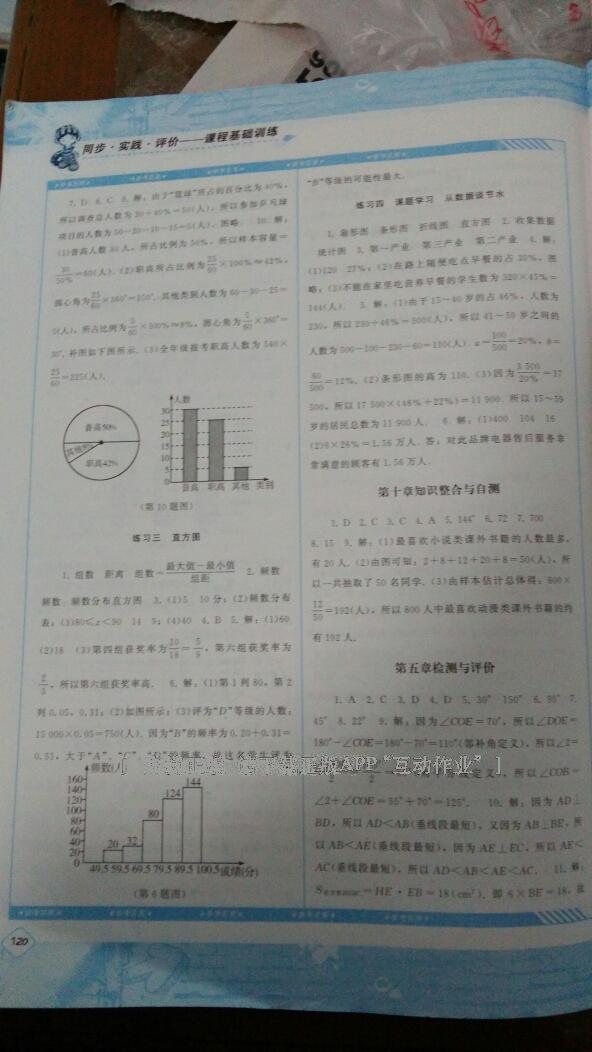 同步·实践·评价——课程基础训练
7. D 8. C 9. 解：由于"篮球"所占的百分比为40%，
所以调查总人数为20÷40%=50(人)，所以参加乒乓球
项目的人数为50-20-10-15=5(人)，图略. 10. 解：
(1)普高人数30人，所占比例为50%，所以样本容量=
30/50%=60(人). (2)职高所占比例为25/60×100%≈42%，
圆心角为25/60×360°=150°. 其他类别人数为60-30-25=
5(人)，所占比例为5/60×100%≈8%，圆心角为5/60×360°=
30°，补图如下图所示. (3)全年级报考职高人数为540×
25/60=225(人).
普高50%
其他8%
职高42%
人数
30
25
20
15
10
5
0
普高 职高 其他 类别
(第10题图)
练习三 直方图
1. 组数 距离 组数=最大值-最小值/组距 2. 频数
频数 频数分布直方图 3. (1)5 10分；(2)频数分布
表；(3)80≤x<90 14 9；(4)40 4. B 5. 解：(1)60
(2)18 (3)第四组获奖率为10/18=5/9，第六组获奖率为
2/3，所以第六组获奖率高. 6. 解：(1)第1列80，第2
列0.05，0.31；(2)如图所示；(3)评为"D"等级的人数：
15 000×0.05=750(人). 因为"B"的频率为0.20+0.31=
0.51，大于"A"、"C"、"D"的频率，故这名学生评为
频数(人
160
140
120
100
80
60
40
20
0
20 32 80 124 144
49.5 59.5 69.5 79.5 89.5 100.5 成绩(分)
(第6题图)
120
"B"等级的可能性最大.
练习四 课题学习 从数据谈节水
1. 扇形图 条形图 折线图 直方图 2. 收集数据
统计图 3. 第一产业 第三产业 第二产业 4. 解：
(1)120 27%；(2)在路上随便吃点早餐的占30%，图
略；(3)不能在家里吃营养早餐的学生数为320×45%=
144(人). 5. 解：(1)由于15～40岁的占46%，人数为
230，所以230÷46%=500(人)，所以41～59岁之间的
人数为500-100-230-60=110(人). a=100/500=20%，b=
60/500=12%. (2)条形图的高为110. (3)因为3 500/20%=17
500，所以17 500×(46%+22%)=11 900. 所以15～59
岁的居民总数为11 900人. 6. 解：(1)400 104 16
(2)6×26%=1.56万人. 答：对此品牌电器售后服务非
常满意的顾客有1.56万人.
第十章知识整合与自测
1. D 2. C 3. C 4. A 5. 144° 6. 72 7. 700
8. 15 9. 解：(1)最喜欢小说类课外书籍的人数最多，
有20人. (2)由图可知：2+8+12+20+8=50(人)，所
以一共抽取了50名同学. (3)由样本估计总体得：800×
12/50=192(人)，所以800人中最喜欢动漫类课外书籍的约
有192人.
第五章检测与评价
1. A 2. C 3. D 4. D 5. 30° 150° 6. 95° 7.
45° 8. 22° 9. 解：因为∠COE=70°，所以∠DOE=
180°-∠COE=180°-70°=110°(邻补角定义)，所以∠2=
分线定义)，所以∠COB=
∠2+∠COE=55°+70°=125°. 10. 解：因为AD⊥
BD，所以AD<AB(垂线段最短)，又因为AB⊥BE，所
以AB<AE(垂线段最短)，因为AE⊥EC，所以AE<
AC(垂线段最短)，所以AD<AB<AE<AC. 11. 解：
=HE·EB=18(cm²). 即6×BE=18，故
APP"互动作业"]